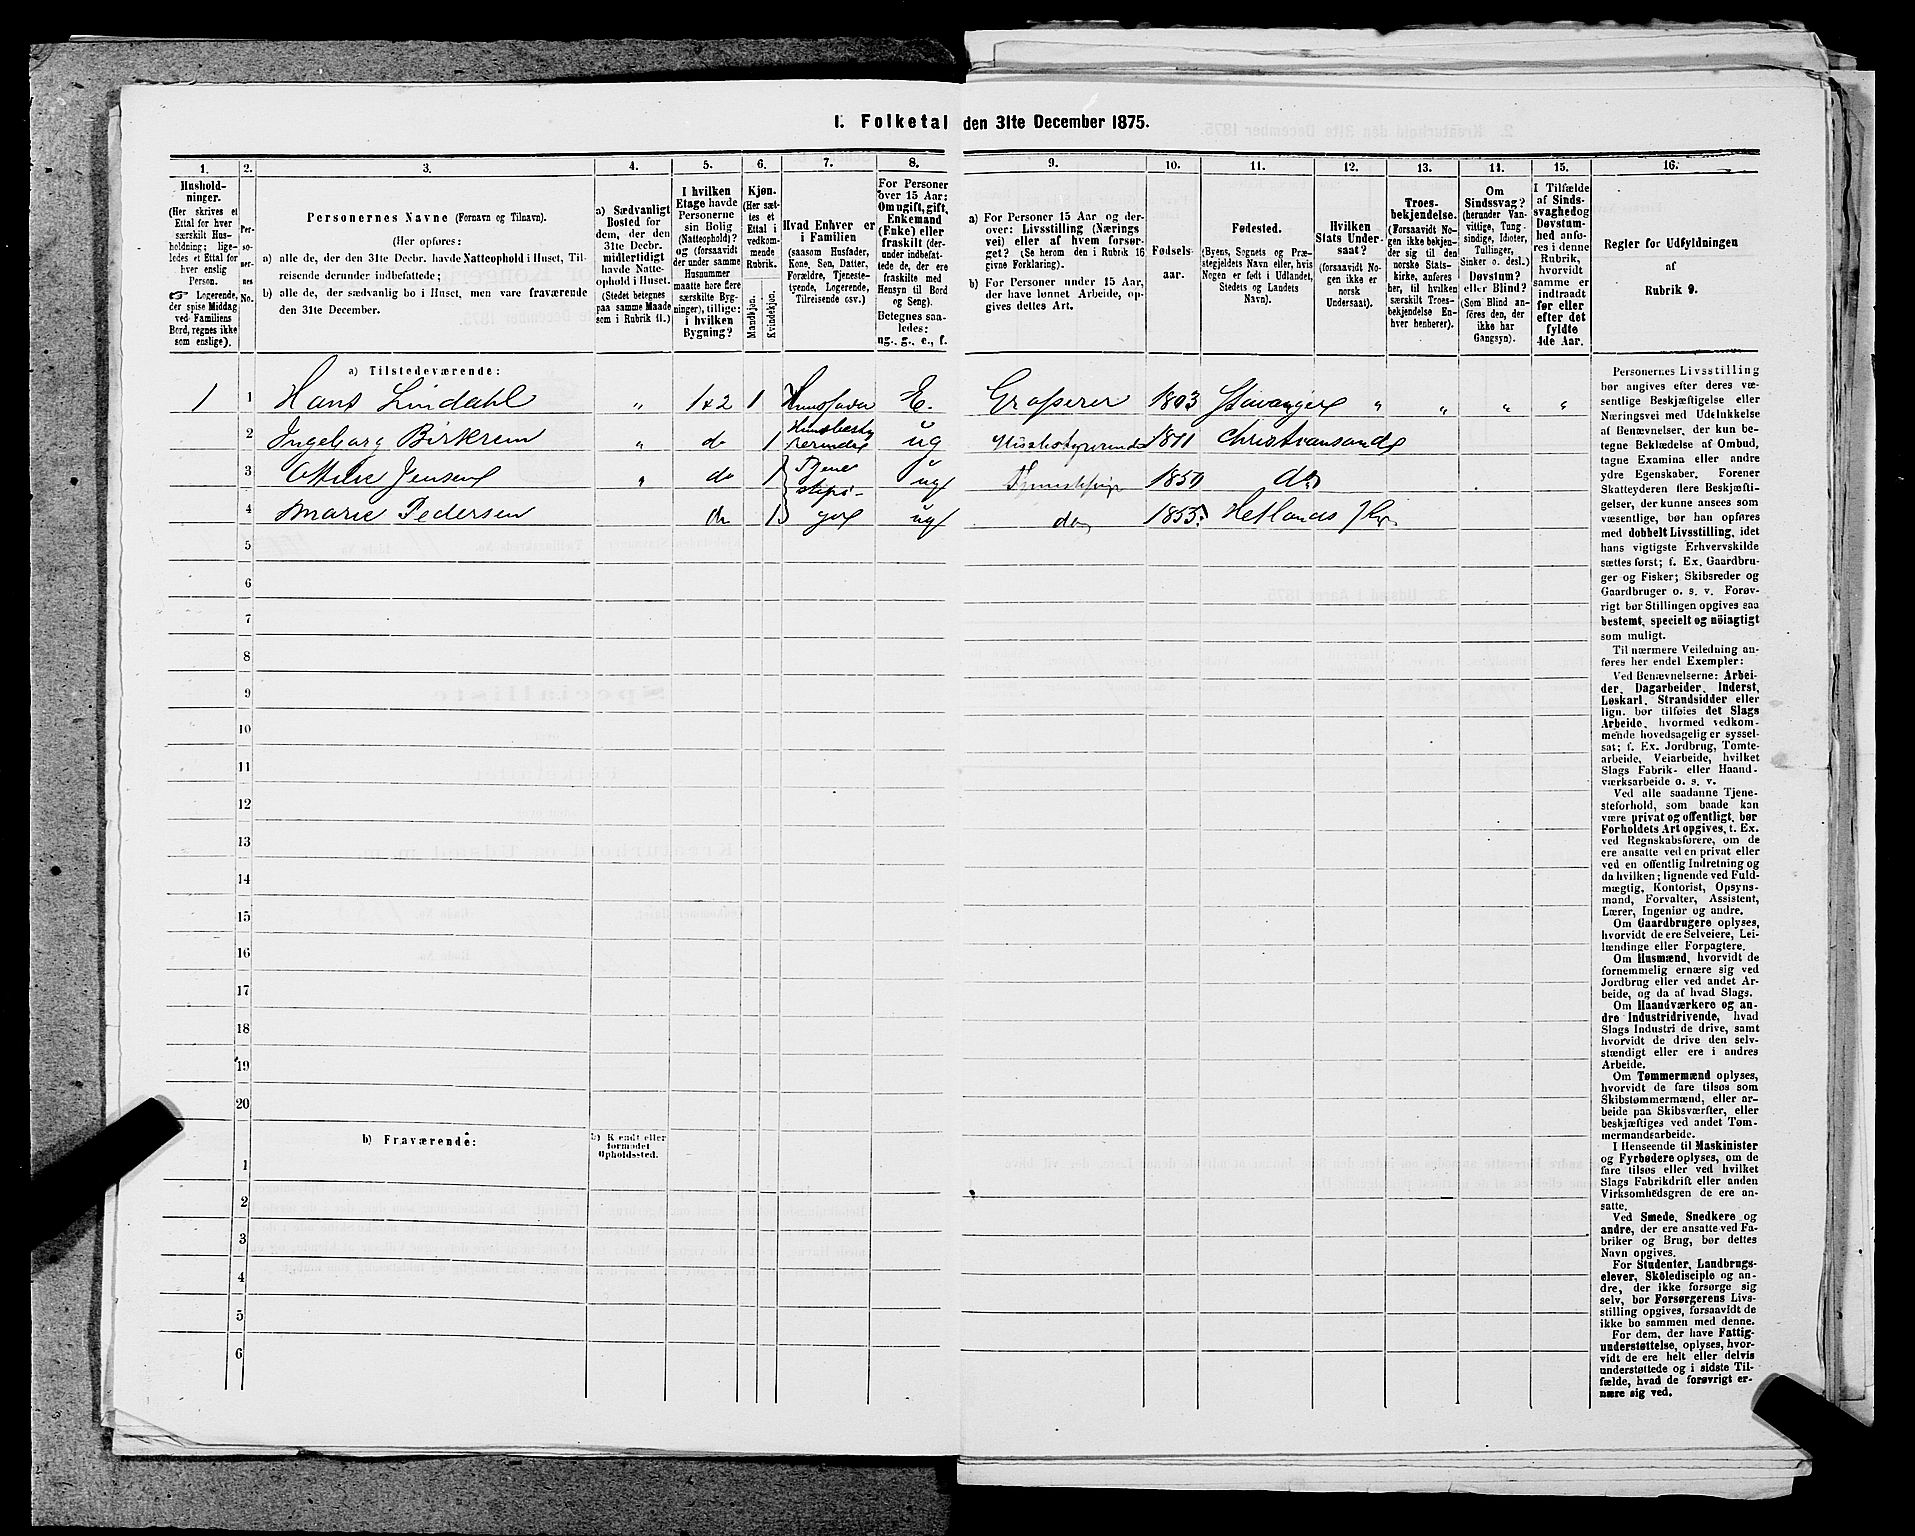 I. Folketal den 31te December 1875.
1. 2. 3. 4. 5. 6. 7. 8. 9. 10. 11. 12. 13. 14. 15. 16.
Hushold-
ninger.
(Her skrives et
Ettal for hver
særskilt Hus-
holdning; lige-
ledes et Ettal for
hver enslig
Person.
☞ Logerende,
der spise Middag
ved Familiens
Bord, regnes ikke
som enslige).
Per-
so-
ner-
nes
No.
Personernes Navne (Fornavn og Tilnavn).
(Her opføres:
a) alle de, der den 31te Decbr. havde Natteophold i Huset, Til-
reisende derunder indbefattede;
b) alle de, der sædvanlig bo i Huset, men vare fraværende
den 31te December.
a) Sædvanligt
Bosted for
dem, der den
31te Decbr.
midlertidigt
havde Natte-
ophold i Huset.
(Stedet betegnes
paa samme Maade
som i Rubrik 11.)
I hvilken
Etage havde
Personerne
sin Bolig
(Natteophold)?
og (forsaavidt
der under samme
Husnummer
maatte høre flere
særskilte Byg-
ninger), tillige:
i hvilken
Bygning?
Kjøn.
(Her sæt-
tes et
Ettal i
vedkom-
mende
Rubrik.
Mandkjøn.
Kvindekjøn.
Hvad Enhver er
i Familien
(saasom Husfader,
Kone, Søn, Datter,
Forældre, Tjeneste-
tyende, Logerende,
Tilreisende osv.)
For Personer
over 15 Aar:
Om ugift, gift,
Enkemand
(Enke) eller
fraskilt (der-
under indbefat-
tede de, der ere
fraskilte med
Hensyn til Bord
og Seng).
Betegnes saa-
ledes:
ug., g., e., f.
a) For Personer 15 Aar og der-
over: Livsstilling (Nærings
vei) eller af hvem forsør-
get? (Se herom den i Rubrik 16
givne Forklaring).
b) For Personer under 15 Aar,
der have lønnet Arbeide, op-
gives dettes Art.
Fødsels-
aar.
Fødested.
(Byens, Sognets og Præ-
stegjeldets Navn eller, hvis
Nogen er født i Udlandet,
Stedets og Landets
Navn).
Hvilken
Stats Under-
saat?
(forsaavidt No-
gen ikke er
norsk
Undersaat).
Troes-
bekjendelse.
(Forsaavidt No-
gen ikke bekjen-
der sig til den
norske Stats-
kirke, anføres
her, til hvilken
særskilt Troes-
bekjendelse En-
hver henhører).
Om
Sindssvag?
(herunder Van-
vittige, Tung-
sindige, Idioter,
Tullinger,
Sinker o. desl.)
Døvstum?
eller Blind?
(Som Blind an-
føres den, der
ikke har
Gangsyn).
I Tilfælde
af Sinds-
svaghed og
Døvstum-
hed anfø-
res i denne
Rubrik,
hvorvidt
samme er
indtraadt
før eller
efter det
fyldte
4de Aar.
Regler for Udfyldningen
af
Rubrik 9.
a) Tilstedeværende:
1 1 Hans Lindahl " 1+2 1 Huusfader E. Grosserer 1803 Stavanger " " " "
2 Ingeborg Birkrem " do 1 Huusbesty rerinde ug 1811 Christiansand
3 Jensen " do 1 Tjene ug do
4 Marie Pedersen do 1 ug do 1855 Hetlands
5
6
7
8
9
10
11
12
13
14
15
16
17
18
19
20
b) Fraværende:
b) Kjendt eller
formodet
Opholdssted.
1
2
3
4
5
6
Personernes Livsstilling
bør angives efter deres væ-
sentlige Beskjæftigelse eller
Næringsvei med Udelukkelse
af Benævnelser, der kun be-
tegne Beklædelse af Ombud,
tagne Examina eller andre
ydre Egenskaber. Forener
Skatteyderen flere Beskjæfti-
gelser, der kunne ansees som
væsentlige, bør han opføres
med dobbelt Livsstilling, idet
hans vigtigste Erhvervskilde
sættes først; f. Ex. Gaardbru-
ger og Fisker; Skibsreder og
Gaardbruger o. s. v. Forøv-
rigt bør Stillingen opgives saa
bestemt, specielt og nöiagtigt
som muligt.
Til nærmere Veiledning an-
føres her endel Exempler:
Ved Benævnelserne: Arbei-
der, Dagarbeider, Inderst,
Løskarl, Strandsidder eller
lign. bør tilføies det Slags
Arbeide, hvormed vedkom-
mende hovedsagelig er syssel-
sat; f. Ex. Jordbrug, Tomte-
arbeide, Veiarbeide, hvilket
Slags Fabrik- eller Haand-
værksarbeide o. s. v.
Ved alle saadanne Tjene-
steforhold, som baade kan
være privat og offentligt, bør
Forholdets Art opgives, t. Ex.
ved Regnskabsførere, om de
ere ansatte ved en privat eller
ved en offentlig Indretning og
da hvilken; lignende ved Fuld-
mægtig, Kontorist, Opsyns-
mand, Forvalter, Assistent,
Lærer, Ingeniør og andre.
Om Gaardbrugere oplyses,
hvorvidt de ere Selveiere, Lei-
lændinge eller Forpagtere.
Om Husmænd, hvorvidt de
fornemmelig ernære sig ved
Jordbrug eller ved andet Ar-
beide, og da af hvad Slags.
Om Haandværkere og an-
dre Industridrivende, hvad
Slags Industri de drive, samt
hvorvidt de drive den selv-
stændigt eller ere i andres
Arbeide.
Om Tømmermænd oplyses,
hvorvidt de fare tilsøs som
Skibstømmermænd, eller ar-
beide paa Skibsværfter, eller
beskjæftiges ved andet Tøm-
mermandsarbeide.
I Henseende til Maskinister
og Fyrbødere oplyses, om de
fare tilsøs eller ved hvilket
Slags Fabrikdrift eller anden
Virksomhedsgren de ere an-
satte.
Ved Smede, Snedkere og
andre, der ere ansatte ved Fa-
briker og Brug, bør dettes
Navn opgives.
For Studenter, Landbrugs-
elever, Skoledisciple og an-
dre, der ikke forsørge sig
selv, bør Forsørgerens Livs-
stilling opgives, forsaavidt de
ikke bo sammen med denne.
For dem, der have Fattig-
understøttelse, oplyses, hvor-
vidt de ere helt eller delvis
understøttede og i sidste Til-
fælde, hvad de forøvrigt er-
nære sig ved.